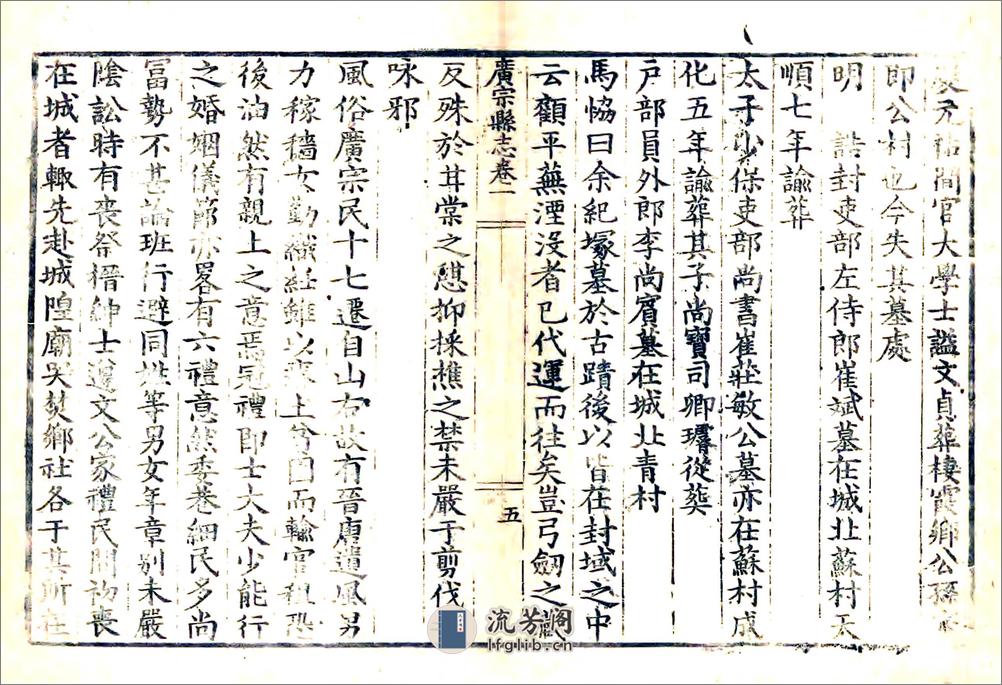 元祐間官大學士謚文貞葬棲霞鄉公孫
即公村也今失其墓處
明　誥封吏部左侍郎崔斌墓在城北蘇村天
順七年諭葬
太子少保吏部尚書崔莊敏公墓亦在蘇村成
化五年諭葬其子尚寶司卿璿從葬
戶部員外郎李尚賓墓在城北青村
馬恊曰余紀塚墓於古蹟後以皆在封域之中
云顧平蕪湮沒者已代運而往矣豈弓劒之藏
廣宗縣志卷一
五
反殊於甘棠之憇抑採樵之禁未嚴于剪伐
咏邪
風俗廣宗民十七遷自山右故有晉唐遺風男
力稼穡女勤織紝雖以上兮因而輸官租恐
後油然有親上之意焉冠禮即士大夫少能行
之婚姻儀節亦畧有六禮意然委巷細民多尚
富勢不甚論班行避同姓等男女年章別未嚴
陰訟時有喪祭搢紳士遵文公家禮民間初喪
在城者輒先赴城隍廟哭焚鄉社各于其所在
流芳閣
lfglib.cn